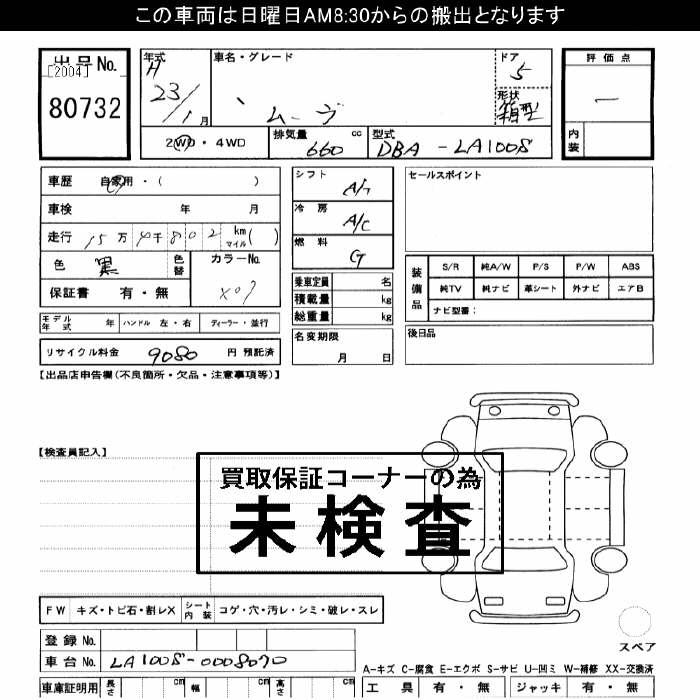 この車両は日曜日AM8:30からの搬出となります
出品No.
[2004]
80732
年式 車名・グレード ドア 評価点
H 23/1月 ムーヴ 5 形状 箱型 内装
2WD・4WD 排気量 660 cc 型式 DBA-LA100S
車歴 自家用・( )
車検 年 月
走行 15万 4千 802 km マイル( )
色 黒 色替 カラーNo. X07
保証書 有・無
モデル年式 年 ハンドル 左・右 ディーラー・並行
リサイクル料金 9080 円 預託済
シフト
冷房 A/C
燃料 G
乗車定員 名
積載量 kg
総重量 kg
名変期限 月 日
セールスポイント
装備品 S/R 純A/W P/S P/W ABS
純TV 純ナビ 革シート 外ナビ エアB
ナビ型番:
後日品
【出品店申告欄(不良箇所・欠品・注意事項等)】
【検査員記入】
買取保証コーナーの為
未検査
FW キズ・トビ石・割レX シート内装 コゲ・穴・汚レ・シミ・破レ・スレ
スペア
登録No.
車台No. LA100S-0008070
A-キズ C-腐食 E-エクボ S-サビ U-凹ミ W-補修 XX-交換済
車庫証明用 長さ cm 幅 cm 高さ cm 工具 有・無 ジャッキ 有・無